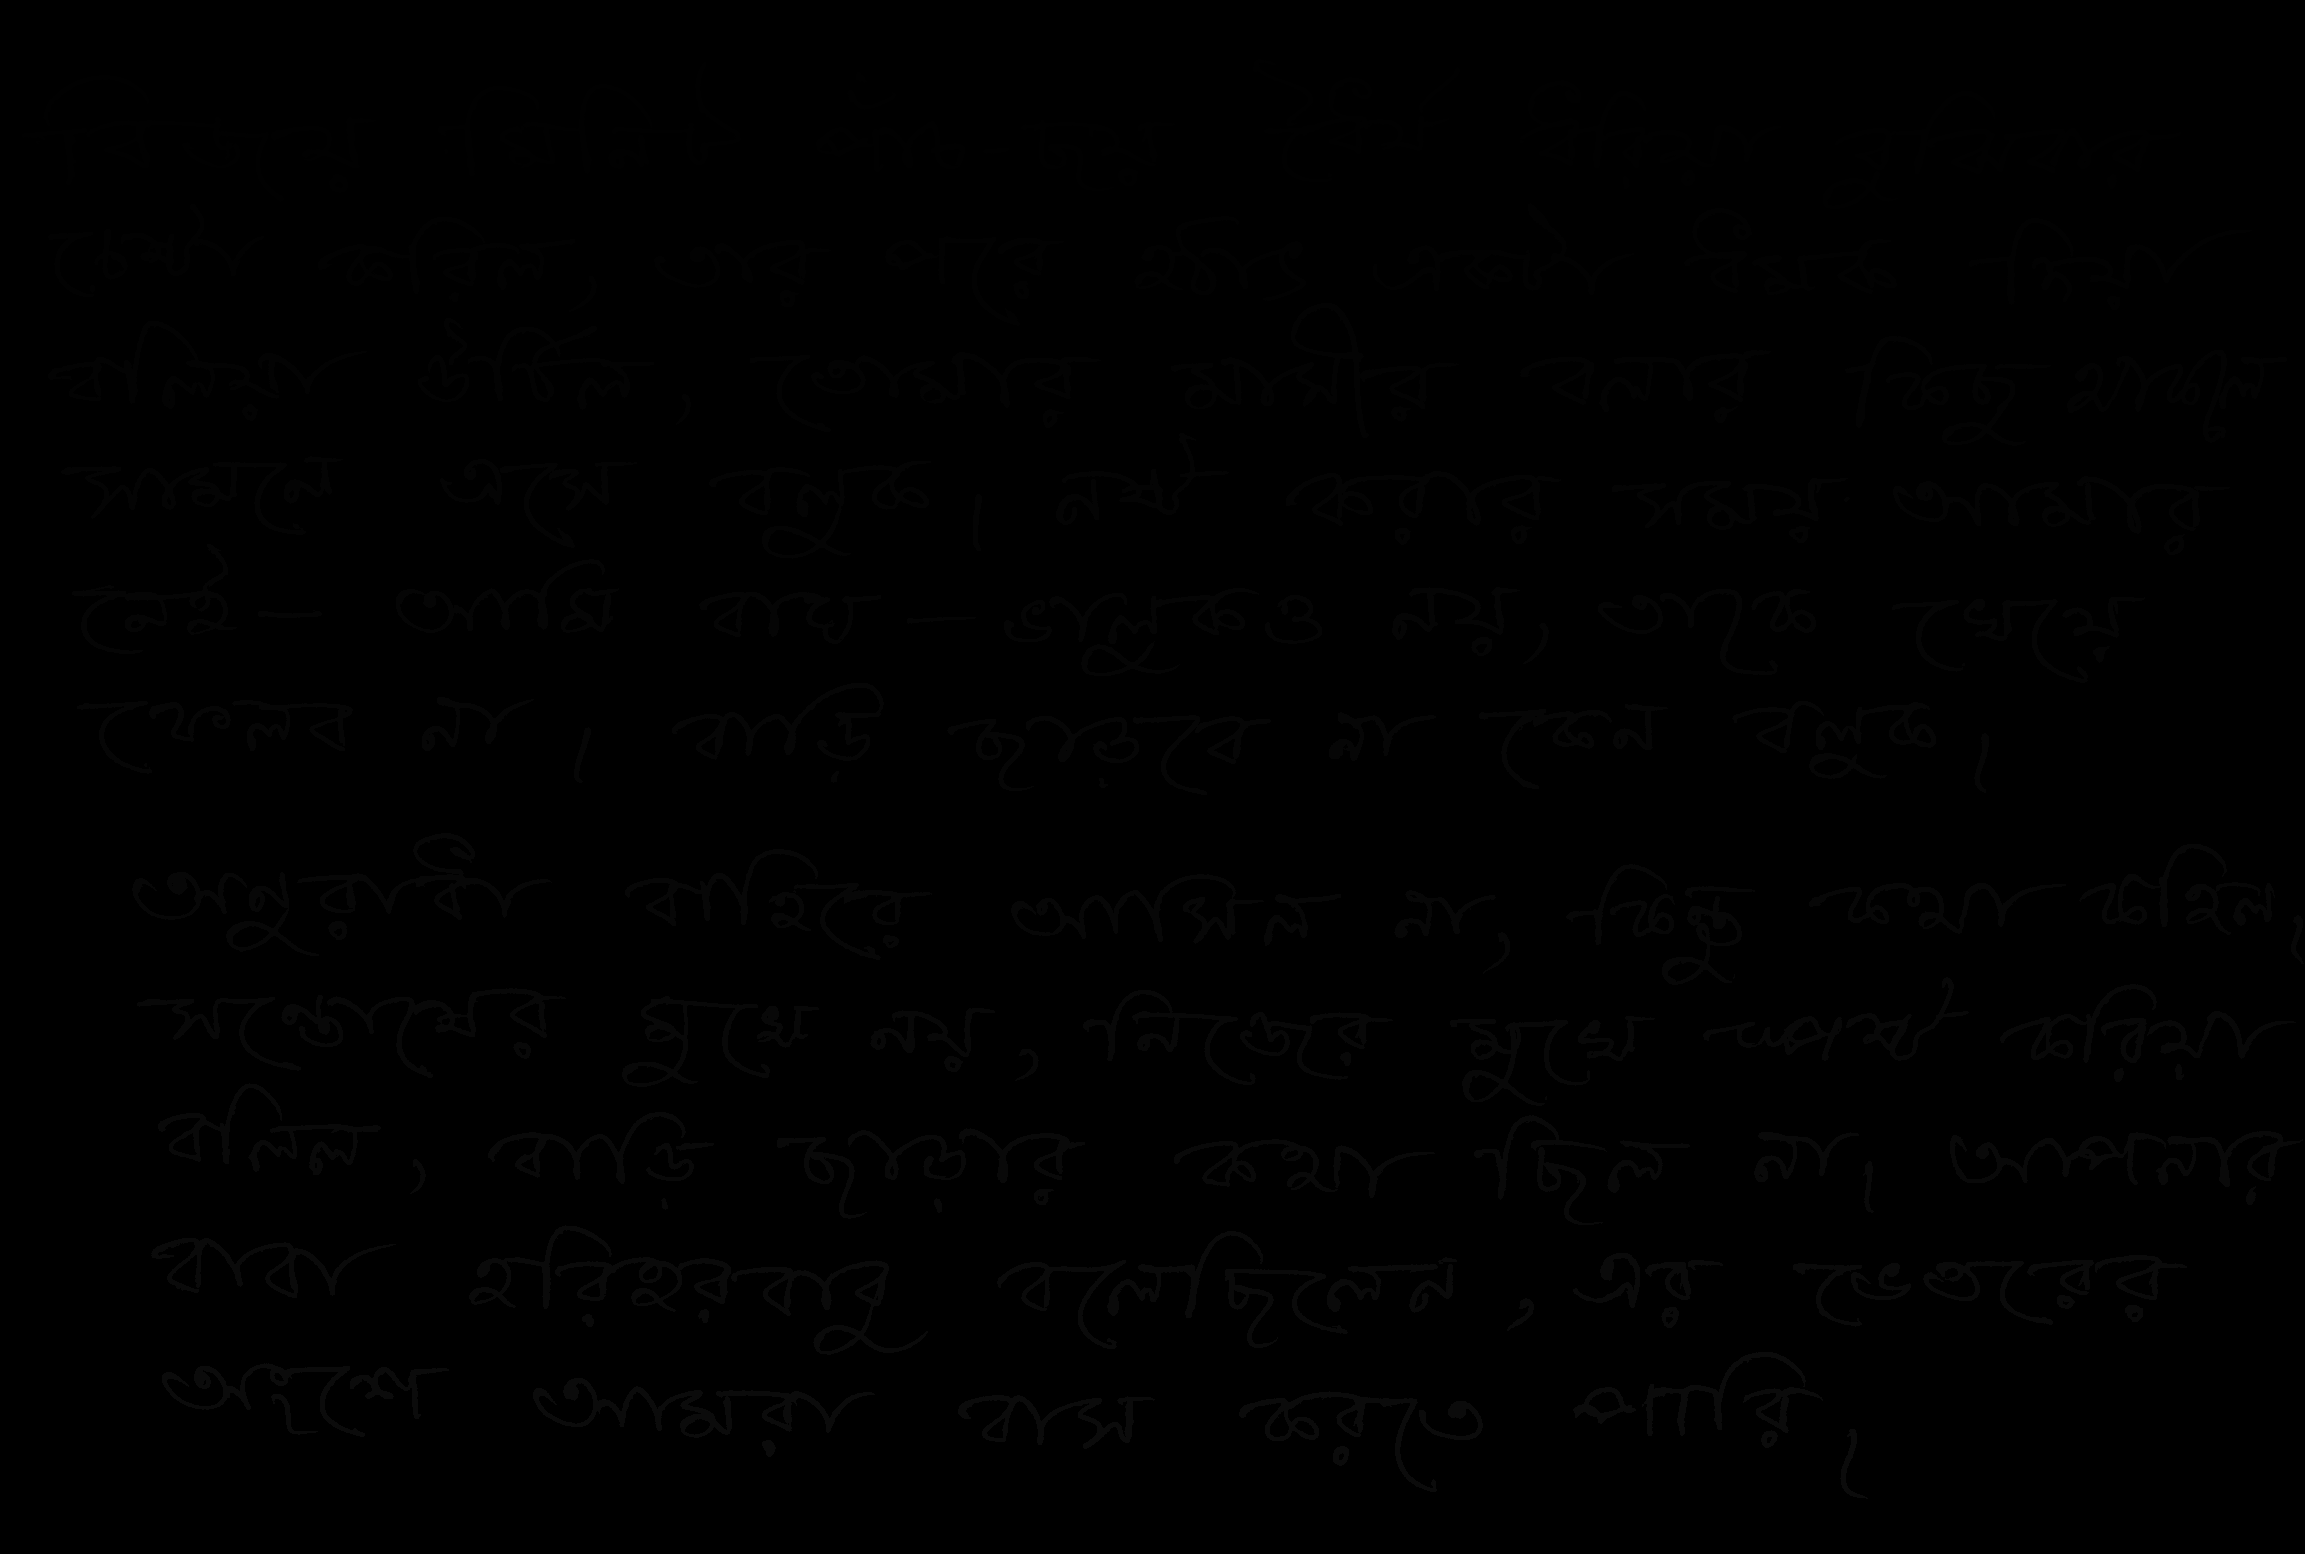 মিনিট
চেষ্টা করিল, তার পরে হঠাৎ একটা ধমক দিয়া
বলিয়া উঠিল, তোমার মাসীর বলার কিছু থাকলে
সামনে এসে বলুক। নষ্ট করার সময় আমার
নেই— আমি বাঘ —ভাল্লুকও নয়, তাকে খেয়ে
ফেলব না। বাড়ি ছাড়বে না কেন বলুক।
অপুরার্ব বাহিরে আসিল না, কিন্তু কথা কহিল,
সন্তোষের মুখে নয়, নিজের মুখে স্পষ্ট করিয়া
বলিল, বাড়ি ছাড়ার কথা ছিল না। আপনার
বাবা হরিহরবাবু বলেছিলেন, এর ভেতরের
অংশে আমরা বাস করতে পারি।